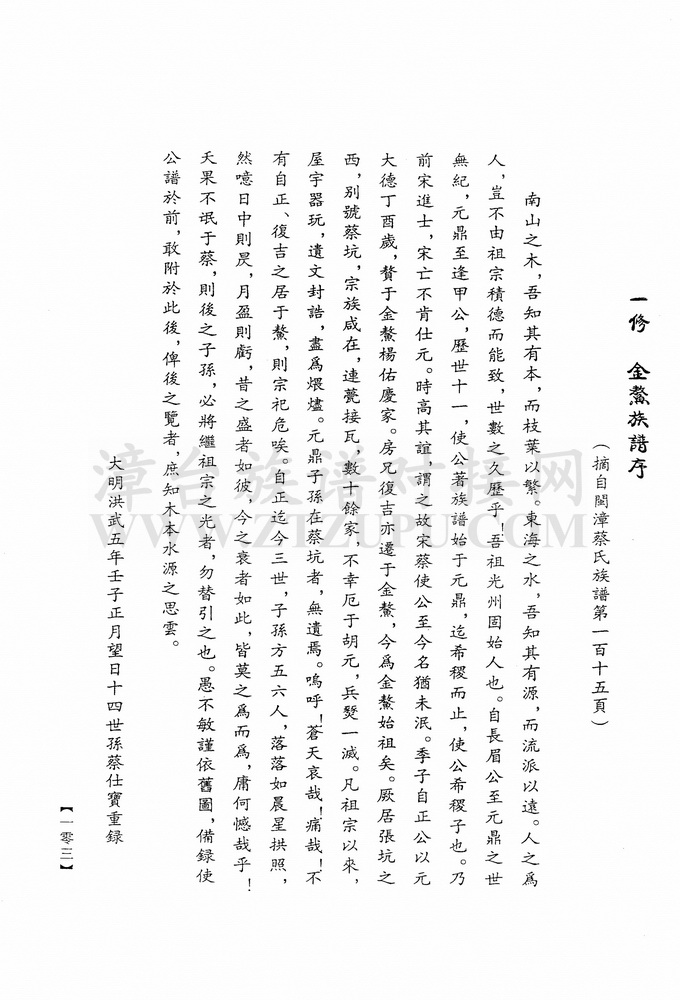 一修　金鰲族譜序
（摘自閩漳蔡氏族譜第一百十五頁）
南山之木，吾知其有本，而枝葉以繁。東海之水，吾知其有源，而流派以遠。人之爲
人，豈不由祖宗積德而能致，世數之久歷乎！吾祖光州固始人也。自長眉公至元鼎之世
無紀，元鼎至逢甲公，歷世十一，使公著族譜始于元鼎，迄希稷而止，使公希稷子也。乃
前宋進士，宋亡不肯仕元。時高其誼，謂之故宋蔡使公至今名猶未泯。季子自正公以元
大德丁酉歲，贅于金鰲楊佑慶家。房兄復吉亦遷于金鰲，今爲金鰲始祖矣。厥居張坑之
西，別號蔡坑，宗族咸在，連甍接瓦，數十餘家，不幸厄于胡元，兵燹一滅。凡祖宗以來，
屋宇器玩，遺文封誥，盡爲煨燼。元鼎子孫在蔡坑者，無遺焉。嗚呼！蒼天哀哉！痛哉！不
有自正、復吉之居于鰲，則宗祀危唉。自正迄今三世，子孫方五六人，落落如晨星拱照，
然噫日中則昃，月盈則虧，昔之盛者如彼，今之衰者如此，皆莫之爲而爲，庸何憾哉乎！
天果不氓于蔡，則後之子孫，必將繼祖宗之光者，勿替引之也。愚不敏謹依舊圖，備録使
公譜於前，敢附於此後，俾後之覽者，庶知木本水源之思雲。
大明洪武五年壬子正月望日十四世孫蔡仕寶重録
【一零三】
漳台族谱对接网
WWW.ZTZUPU.COM